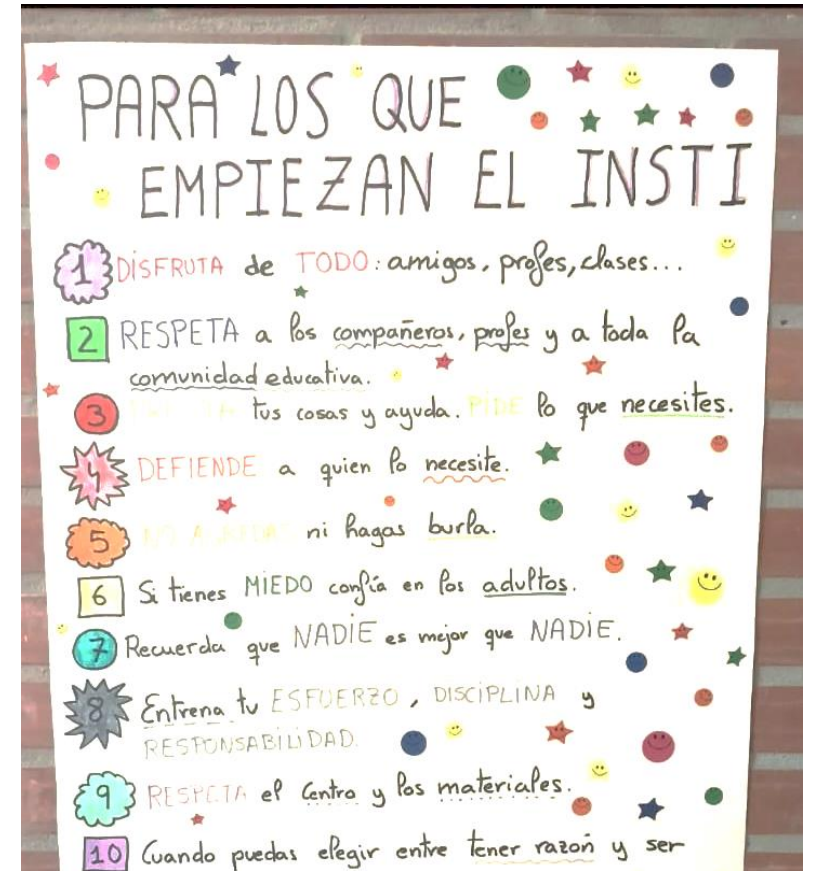 PARA LOS QUE
EMPIEZAN EL INSTI
1 DISFRUTA de TODO: amigos, profes, clases...
2 RESPETA a los compañeros, profes y a toda la
comunidad educativa.
3 tus cosas y ayuda. PIDE lo que necesites.
4 DEFIENDE a quien lo necesite.
5 NO ni hagas burla.
6 Si tienes MIEDO confía en los adultos.
7 Recuerda que NADIE es mejor que NADIE.
8 Entrena tu ESFUERZO, DISCIPLINA y
RESPONSABILIDAD.
9 RESPETA el Centro y los materiales.
10 Cuando puedas elegir entre tener razón y ser